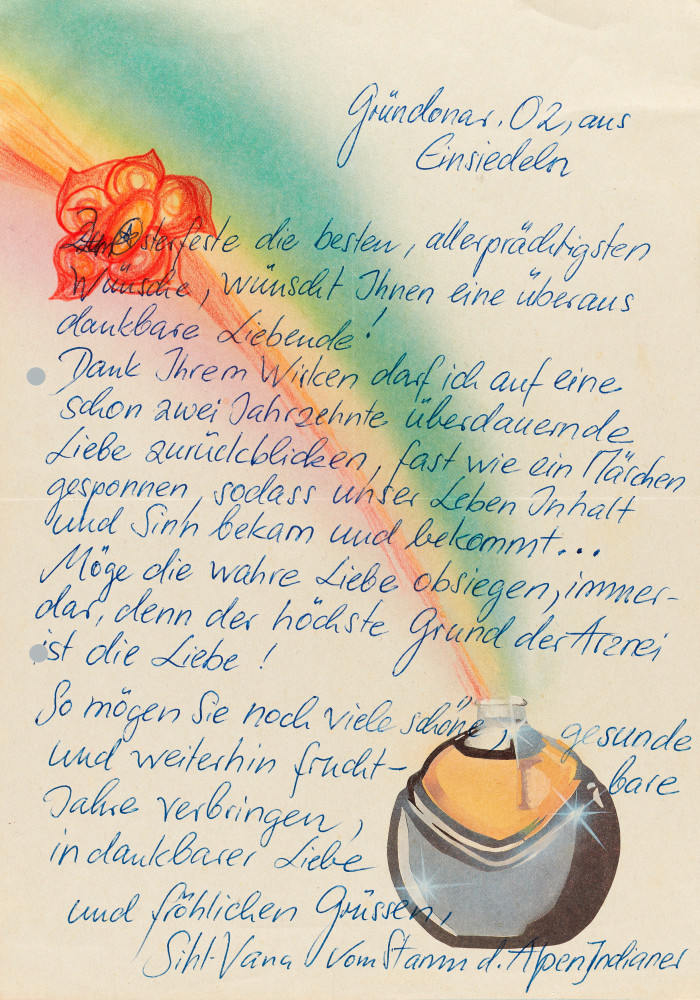 Gründonar. 02, aus
Einsiedeln
Zum Osterfeste die besten, allerprächtigsten
Wünsche, wünscht Ihnen eine überaus
dankbare Liebende!
Dank Ihrem Wirken darf ich auf eine
schon zwei Jahrzehnte überdauernde
Liebe zurückblicken, fast wie ein Märchen
gesponnen, sodass unser Leben Inhalt
und Sinn bekam und bekommt...
Möge die wahre Liebe obsiegen, immer-
dar, denn der höchste Grund der Arznei
ist die Liebe!
So mögen Sie noch viele schöne, gesunde
und weiterhin frucht- bare
Jahre verbringen,
in dankbarer Liebe
und fröhlichen Grüssen,
Sihl-Vana vom Stamm d. AlpenIndianer